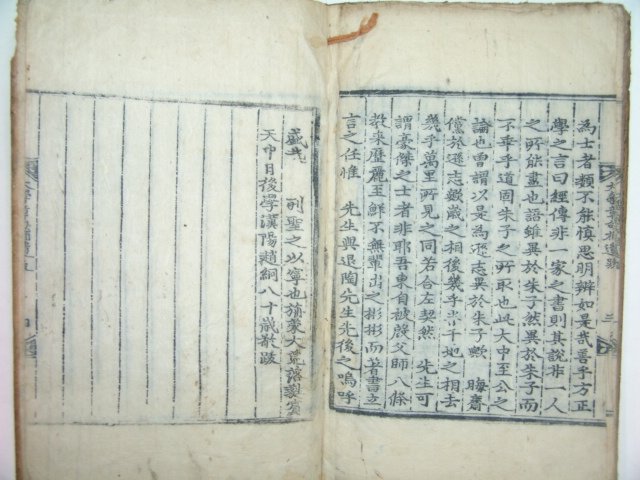 大學章句補遺跋
三
為士者類不能慎思明辨如是哉善乎方正
學之言曰經傳非一家之書則其說非一人
之所能盡也語雖異於朱子然異於朱子而
不乖乎道固朱子之所取也此大中至公之
論也曾謂以是為遜志異於朱子歟 晦齋
於遜志數歲之相後幾乎半千地之相去
幾乎萬里所見之同若合左契然 先生可
謂豪傑之士者非耶吾東自被殷父師八條
教來歷麗至鮮不無輩出之彬彬而著書立
言之任惟 先生與退陶先生先後之嗚呼
盛哉 列聖之以寧也旃蒙大荒落蕤賓
天中日後學漢陽趙絅八十歲敬跋